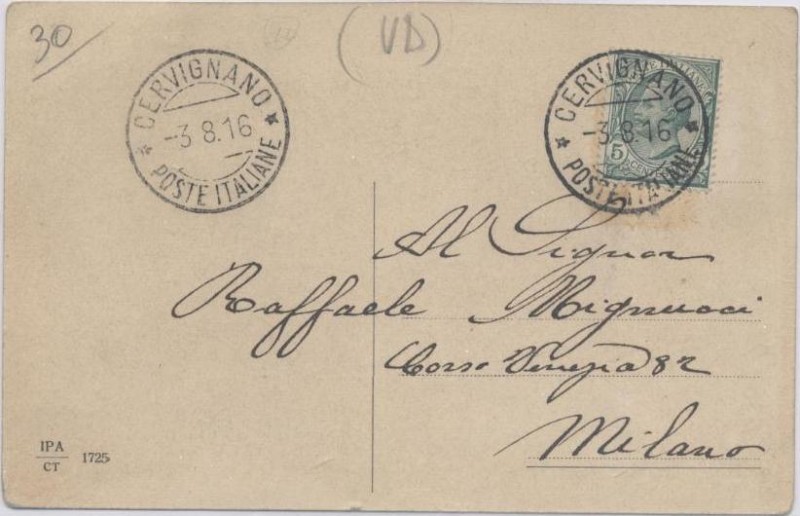 30
(VD)
CERVIGNANO
-3 8.16
POSTE ITALIANE
CERVIGNANO
-3 8.16
POSTE ITALIANE
5
Al Signor
Raffaele Mignucci
Corso Venezia 82
Milano
IPA
CT
1725